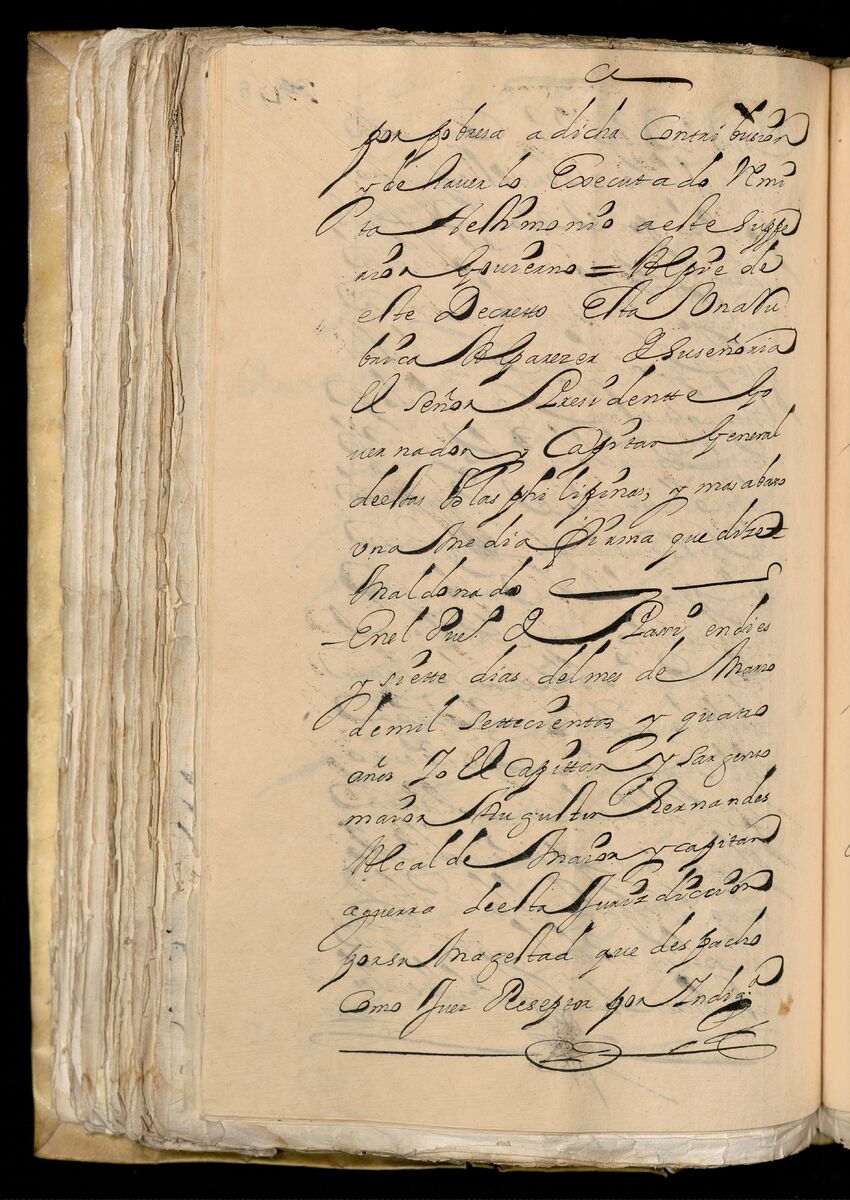 por pobresa a dicha Contribusion
y de hauerlo Executado Remi
ta testimonio a este Supe
rior Gouierno = Al pie de
este Decretto Esta Una Ru
brica Al parezer de su señoria
El señor Presidentte Go
uernador y Capitan General
de estas Islas philipinas, y mas abaxo
vna media firma que dize =
Maldonado
En el Puel de en dies
y siette dias del mes de Maio
de mil settecientos y quatro
años Yo El Capittan y sargento
maior Augustin Hernandes
Alcalde Maior y capitan
a guerra de esta Jurizdiccion
por su Magestad que despacho
Como Juez Reseptor por Indig.ª